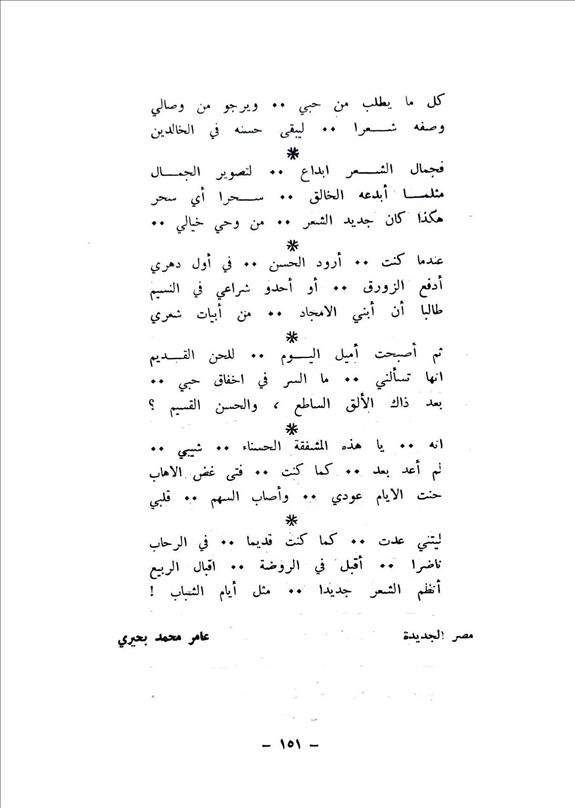 كل ما يطلب من حبي ٠٠ ويرجو من وصالي
وصفه شعرا ٠٠ ليبقى حسنه في الخالدين
*
فجمال الشعر ابداع ٠٠ لتصوير الجمال
مثلما أبدعه الخالق ٠٠ سحرا أي سحر
هكذا كان جديد الشعر ٠٠ من وحي خيالي ٠٠
*
عندما كنت ٠٠ أرود الحسن ٠٠ في أول دهري
أدفع الزورق ٠٠ أو أحدو شراعي في النسيم
طالبا أن أبني الامجاد ٠٠ من أبيات شعري
*
ثم أصبحت أميل اليوم ٠٠ للحن القديم
انها تسألني ٠٠ ما السر في اخفاق حبي ٠٠
بعد ذاك الألق الساطع ، والحسن القسيم ؟
*
انه ٠٠ يا هذه المشفقة الحسناء ٠٠ شيبي ٠٠
لم أعد بعد ٠٠ كما كنت ٠٠ فتى غض الاهاب
حنت الايام عودي ٠٠ وأصاب السهم ٠٠ قلبي
*
ليتني عدت ٠٠ كما كنت قديما ٠٠ في الرحاب
ناضرا ٠٠ أقبل في الروضة ٠٠ اقبال الربيع
أنظم الشعر جديدا ٠٠ مثل أيام الشباب !
مصر الجديدة عامر محمد بحيري
– ١٥١ –